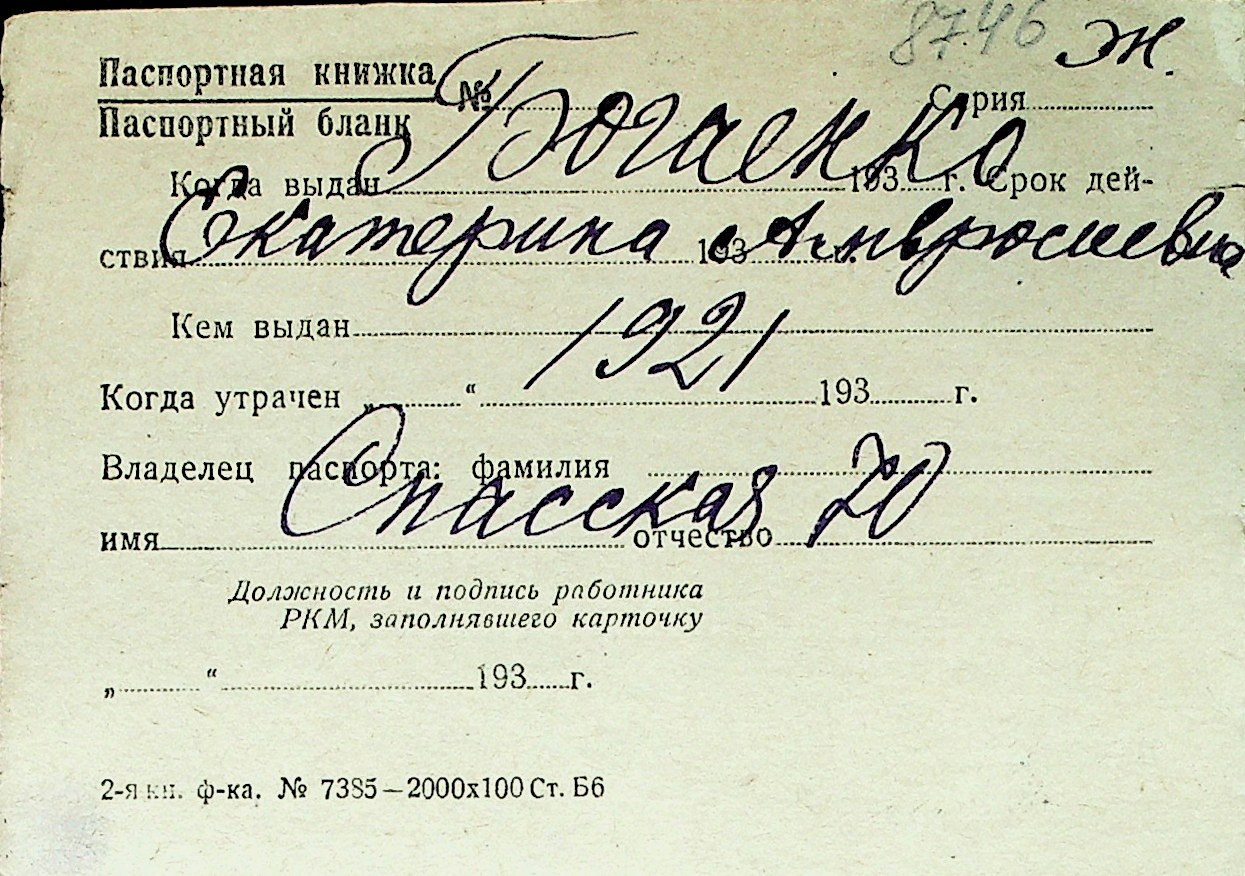 8746 Ж.
Паспортная книжка № Серия
Паспортный бланк
Богаенко
Когда выдан 193 г. Срок дей-
Екатерина Амвросиевна
ствия 193 г.
Кем выдан
1921
Когда утрачен „ “ 193 г.
Владелец паспорта: фамилия
Спасская 70
имя отчество
Должность и подпись работника
РКМ, заполнявшего карточку
„ “ 193 г.
2-я кн. ф-ка. № 7385—2000х100 Ст. Б6